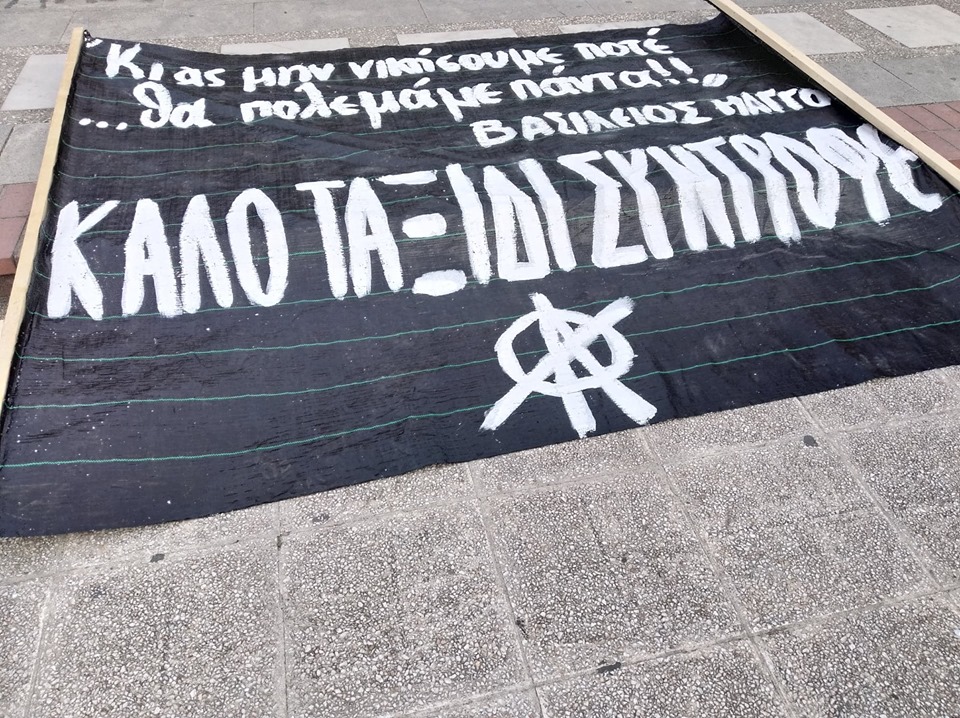 "Κι ας μην νικήσουμε ποτέ
...θα πολεμάμε πάντα!!"
ΒΑΣΙΛΕΙΟΣ ΜΑΓΓΟ
ΚΑΛΟ ΤΑΞΙΔΙ ΣΥΝΤΡΟΦΕ